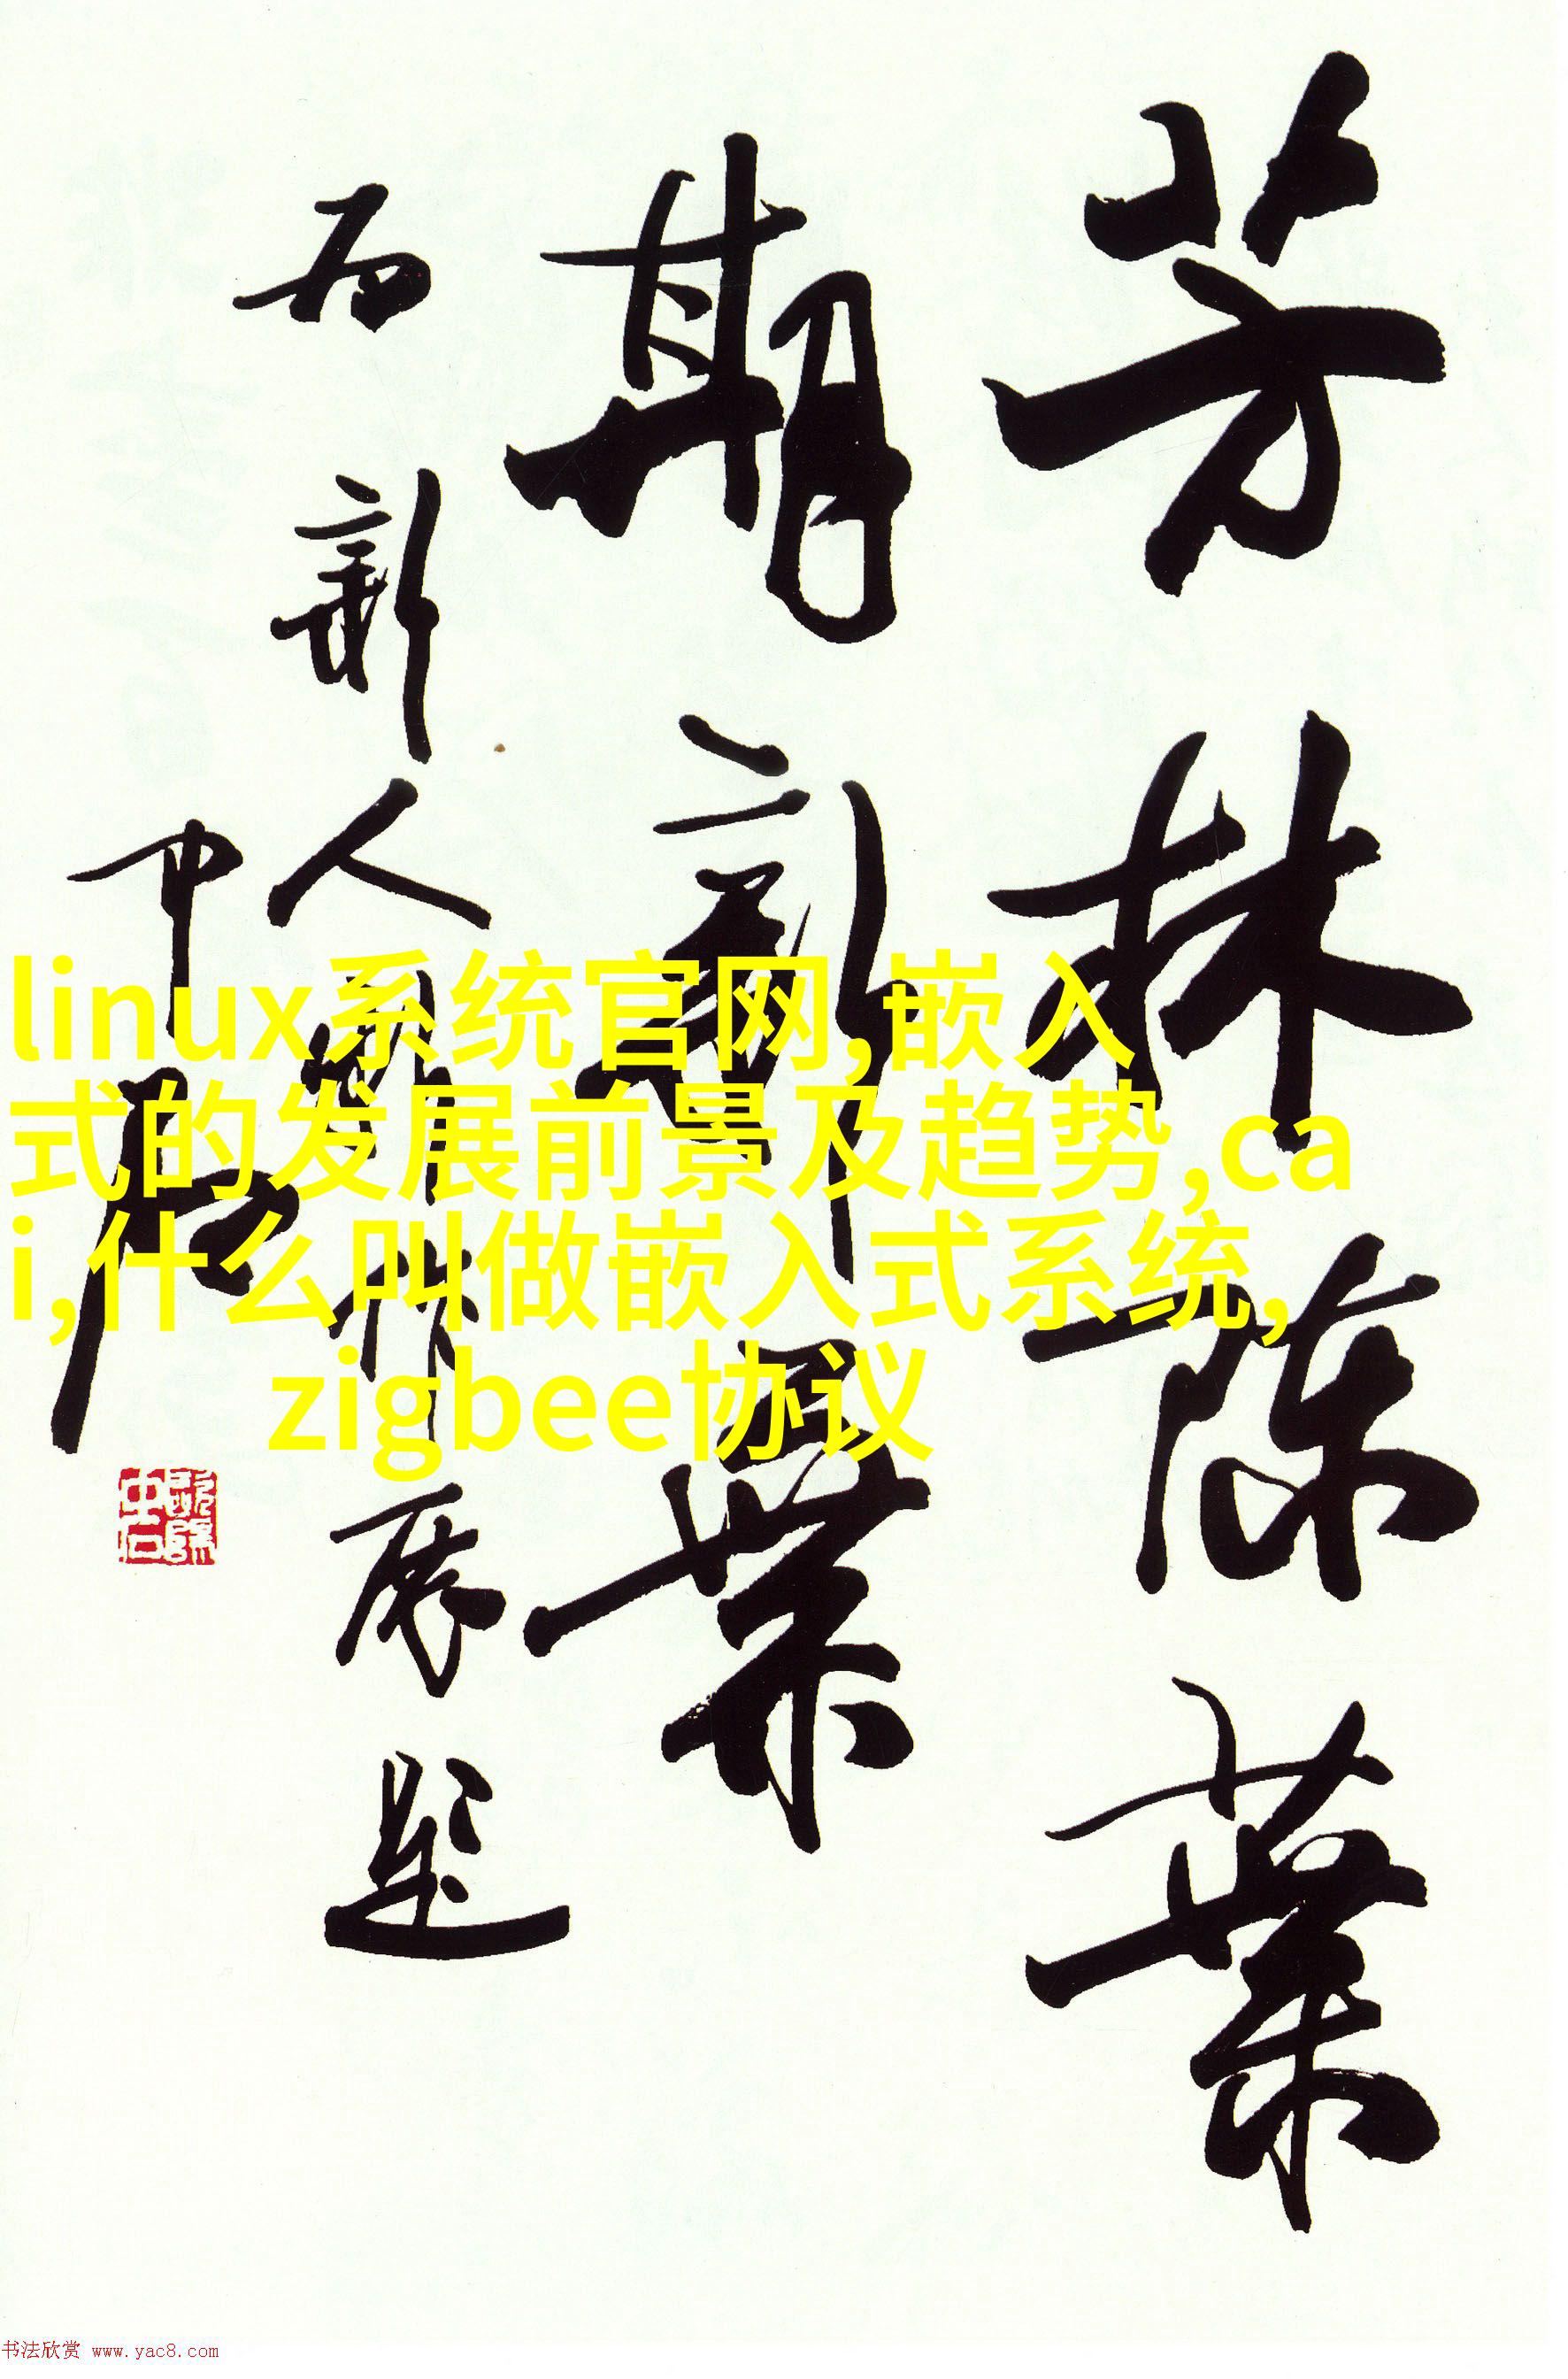 芳林陈葉
期新葉
为新人新作展题
中石
linux系统官网,嵌入
式的发展前景及趋势,ca
i,什么叫做嵌入式系统,
zigbee协议
书法欣赏 www.yac8.com